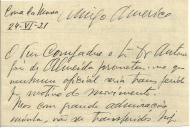 Cova da Moura
24-VI-21
Amigo Americo
O seu Compadre o Sr Dr Antonio
José de Almeida prometeu-me que
nenhum oficial seria transferido
por motivo do movimento.
Mas com grande admiração
minha, vi-me transferido hoje